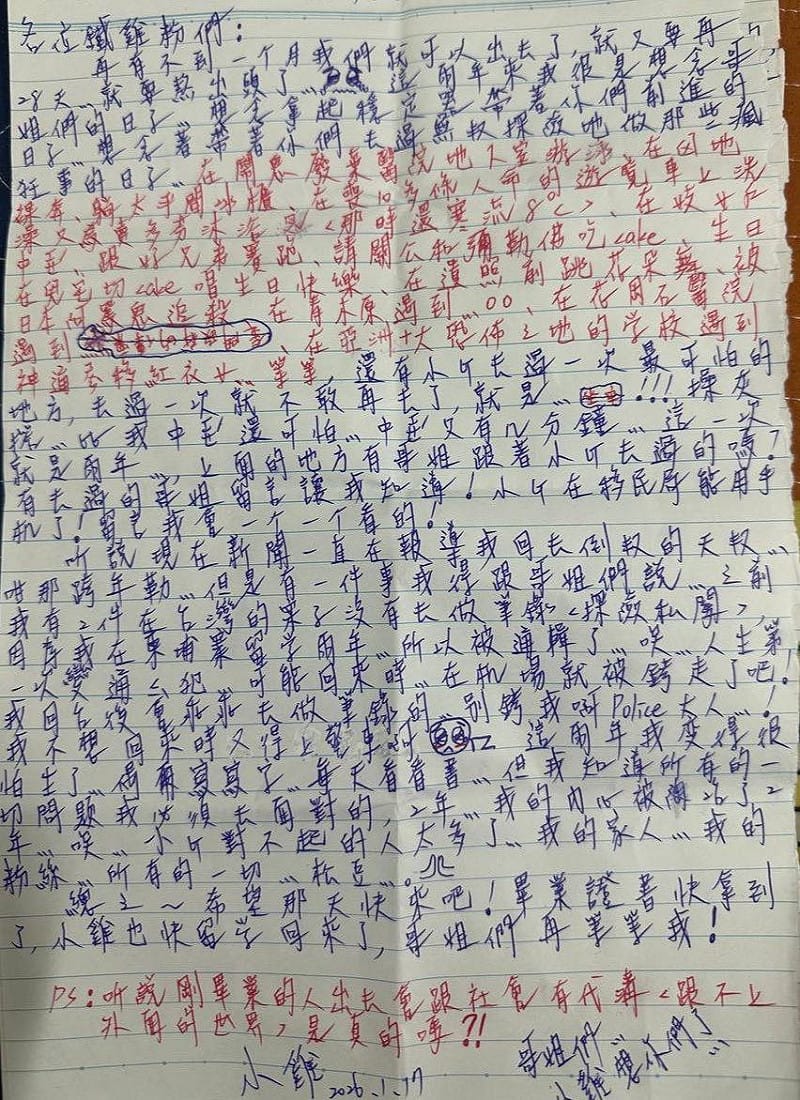 各位鐵雞粉們:
再有不到一个月我們就可以出去了,就又要再
28天…就要熬出頭了…這兩年來我很是想念哥
姐們的日子…想念拿起穩定器帶著你們前進的
日子…想念著帶著你們去過無数探險地做那些瘋
狂事的日子…在鬧鬼廢棄醫院地下室游泳、在凶地
裸奔、躺太平間冰櫃、在喪10多條人命的遊覽車上洗
澡又感責多芬沐浴乳<那時還寒流8°C>、在妓女戶
中邪、跟好兄弟賽跑、請關公和彌勒佛吃cake、生日
在鬼宅切cake唱生日快樂、在遺照前跳花朵舞、被
日本阿羣鬼追殺、在青木原遇到…00、在花岡石醫院
遇到、在亞洲十大恐佈之地的学校遇到
神道秀移紅衣女…等等,還有小ㄐ去過一次最可怕的
地方,去過一次就不敢再去了,就是…!!!探灰
探…比我中邪還可怕…中邪又有几分鐘…這一次
就是兩年…,上面的地方有哥姐跟著小ㄐ去過的嗎?
有去過的哥姐留言讓我知道!小ㄐ在移民局能用手
机了!留言我會一个一个看的!
听說現在新聞一直在報導我回去倒数的天数…
咁那跨年勒…但是有一件事我得跟哥姐們說…之前
我有2件在台灣的案子沒有去做筆錄<探險私闖>,
因為我在柬埔寨留学兩年…所以被通輯了…唉…人生第
一次變通ㄑ犯…可能回來時…在机場就被銬走了吧!
我回台後會乖乖去做筆錄的…別銬我啊Police大人…!
我不想回來時又得上警車啊 這兩年我变得很
怕生了…偶爾寫寫字…每天看看書…但我知道所有的一
切問題我必須去面對的,2年…我的内心被淘岩了2
年…唉…小ㄐ對不起的人太多了…我的家人…我的
粉絲…所有的一切…松豆…
總之~希望那天快來吧!畢業證書快拿到
了,小雞也快留学回來了,哥姐們再等等我!
PS:听說剛畢業的人出去會跟社會有代溝<跟不上
外面的世界>是真的嗎?!
哥姐們…
小雞想你們了…
小雞 2026.1.17